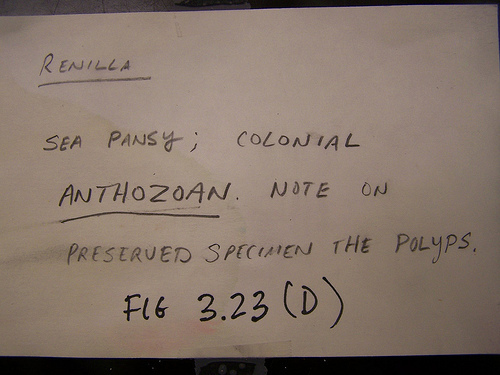 RENILLA
SEA PANSY; COLONIAL
ANTHOZOAN. NOTE ON
PRESERVED SPECIMEN THE POLYPS.
FIG 3.23 (D)